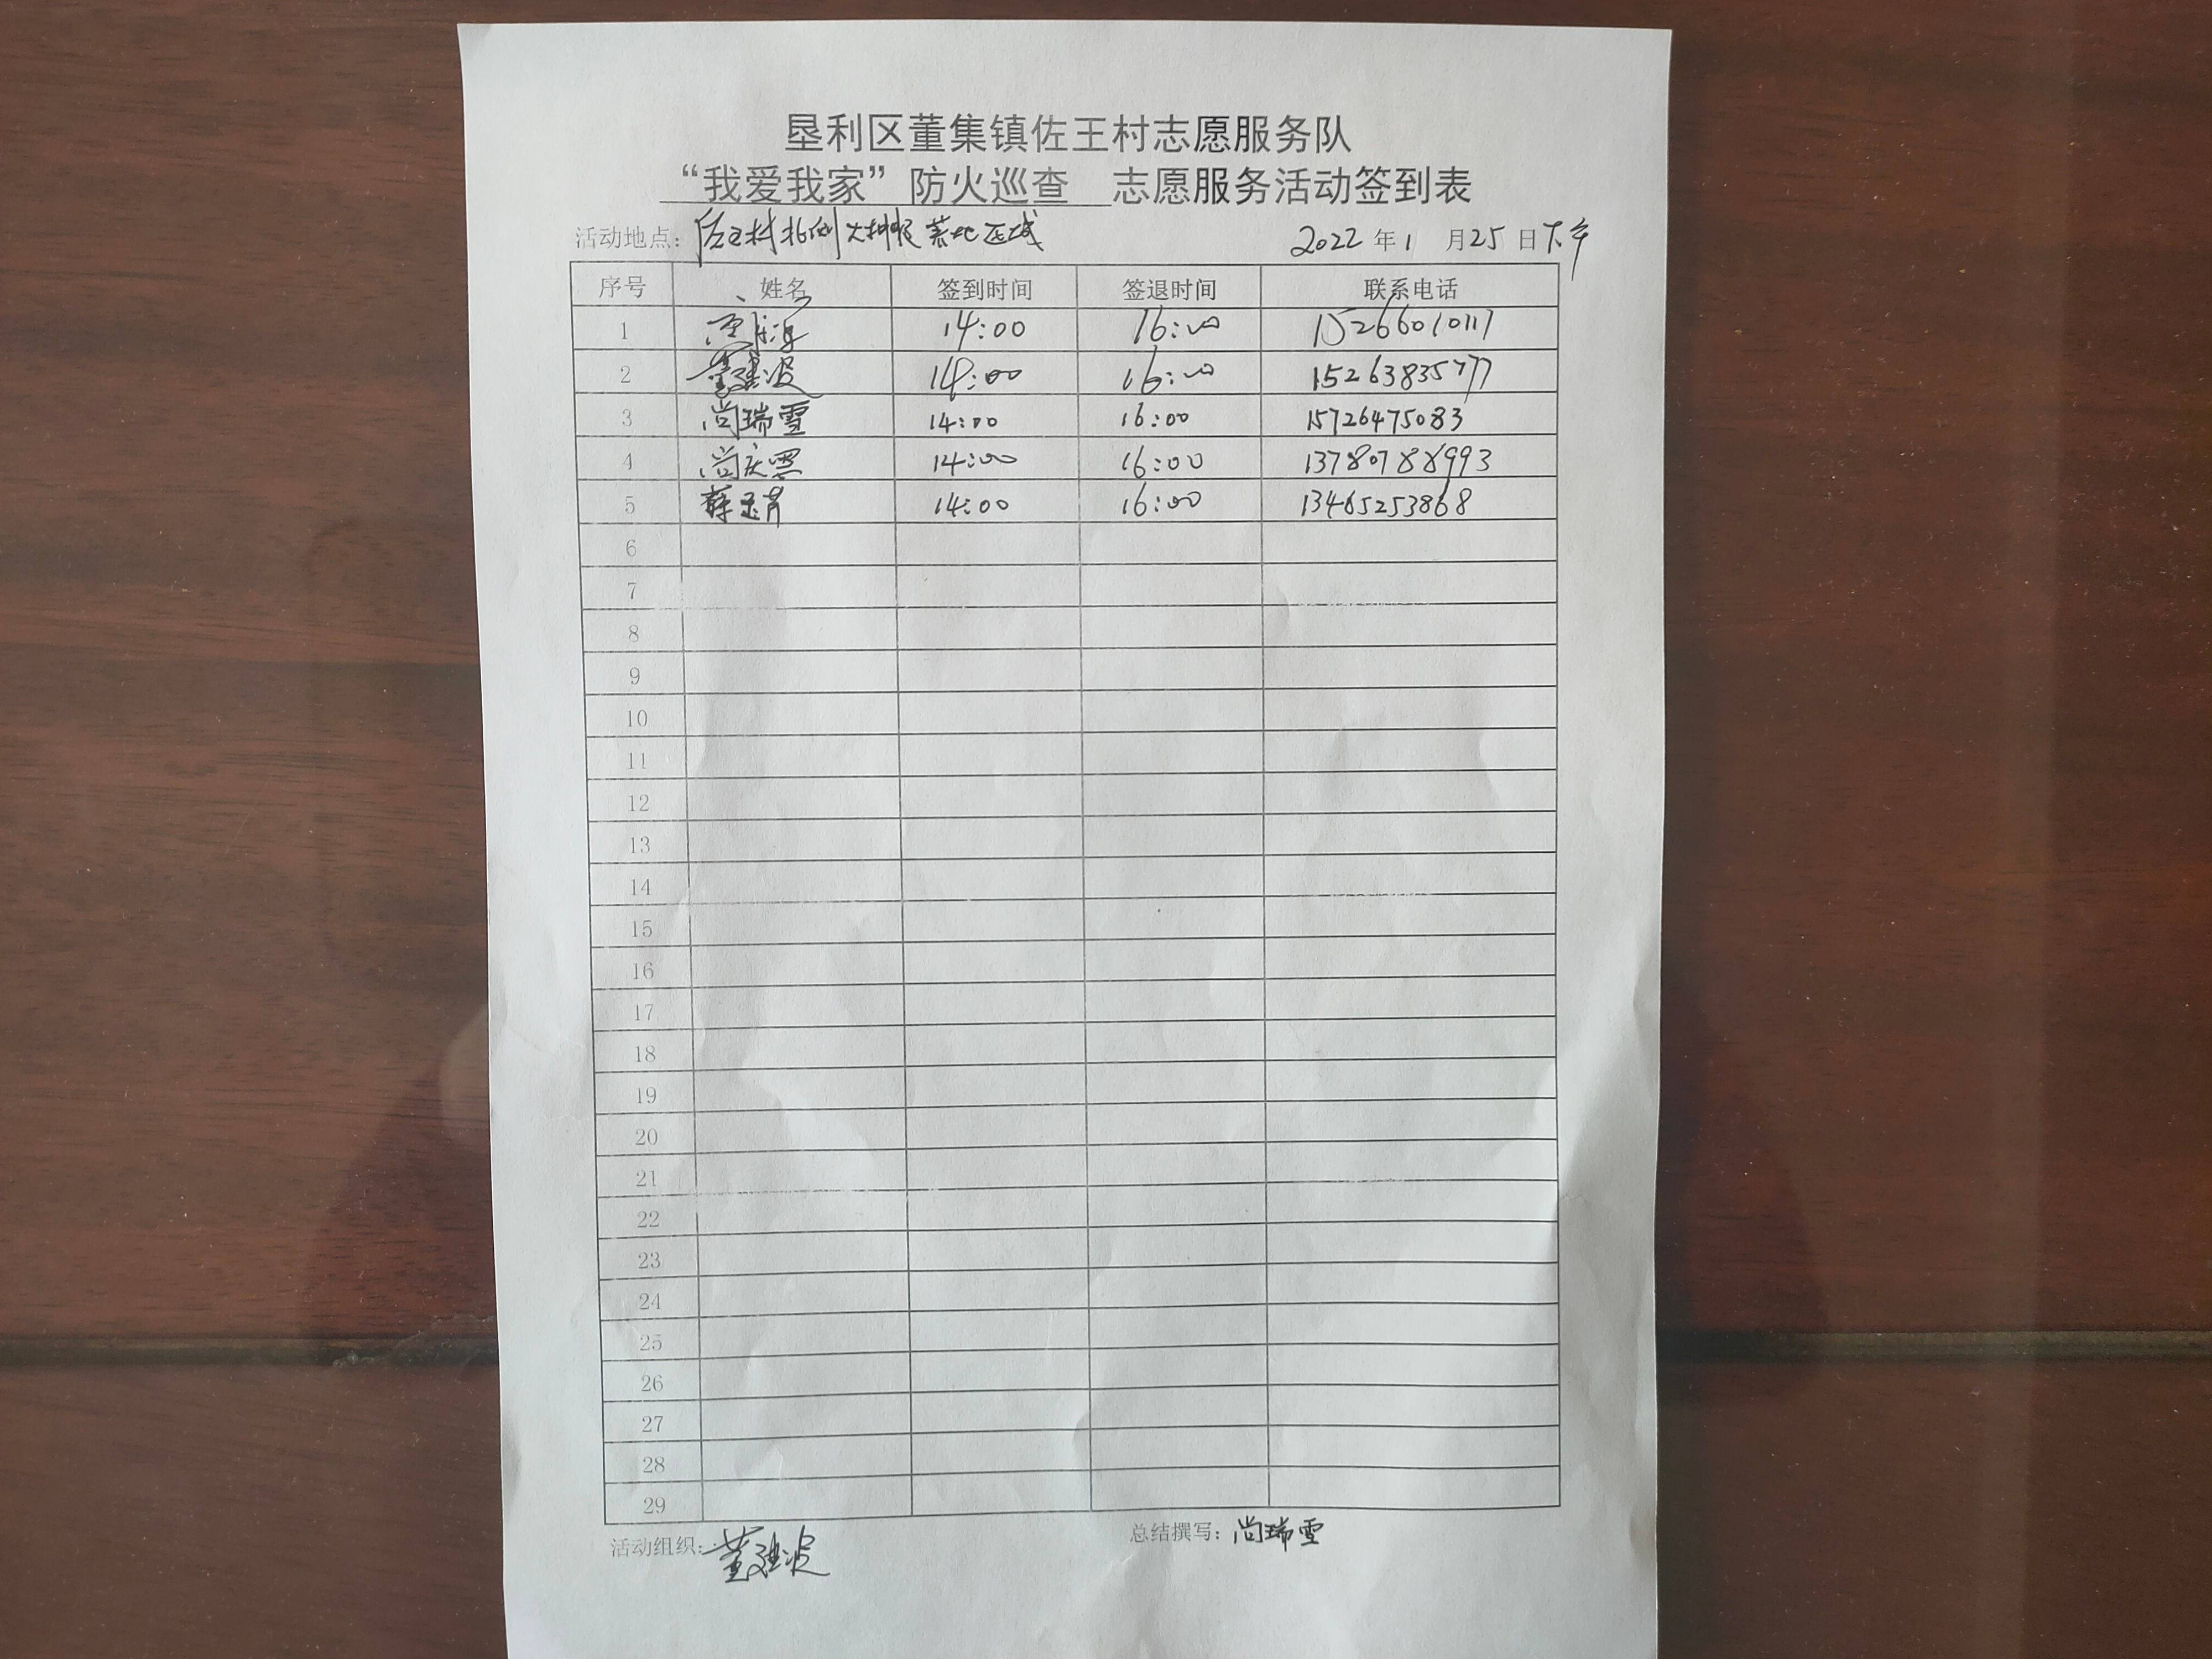 垦利区董集镇佐王村志愿服务队
“我爱我家”防火巡查 志愿服务活动签到表
活动地点：佐王村北侧 荒地区域 2022年1月25日下午
序号 姓名 签到时间 签退时间 联系电话
1 14:00 16:00 15266010117
2 董建波 14:00 16:00 15263835777
3 尚瑞雪 14:00 16:00 15726475083
4 尚庆 14:00 16:00 13780788993
5 薛 14:00 16:00 13465253868
6
7
8
9
10
11
12
13
14
15
16
17
18
19
20
21
22
23
24
25
26
27
28
29
活动组织：董建波 总结撰写：尚瑞雪